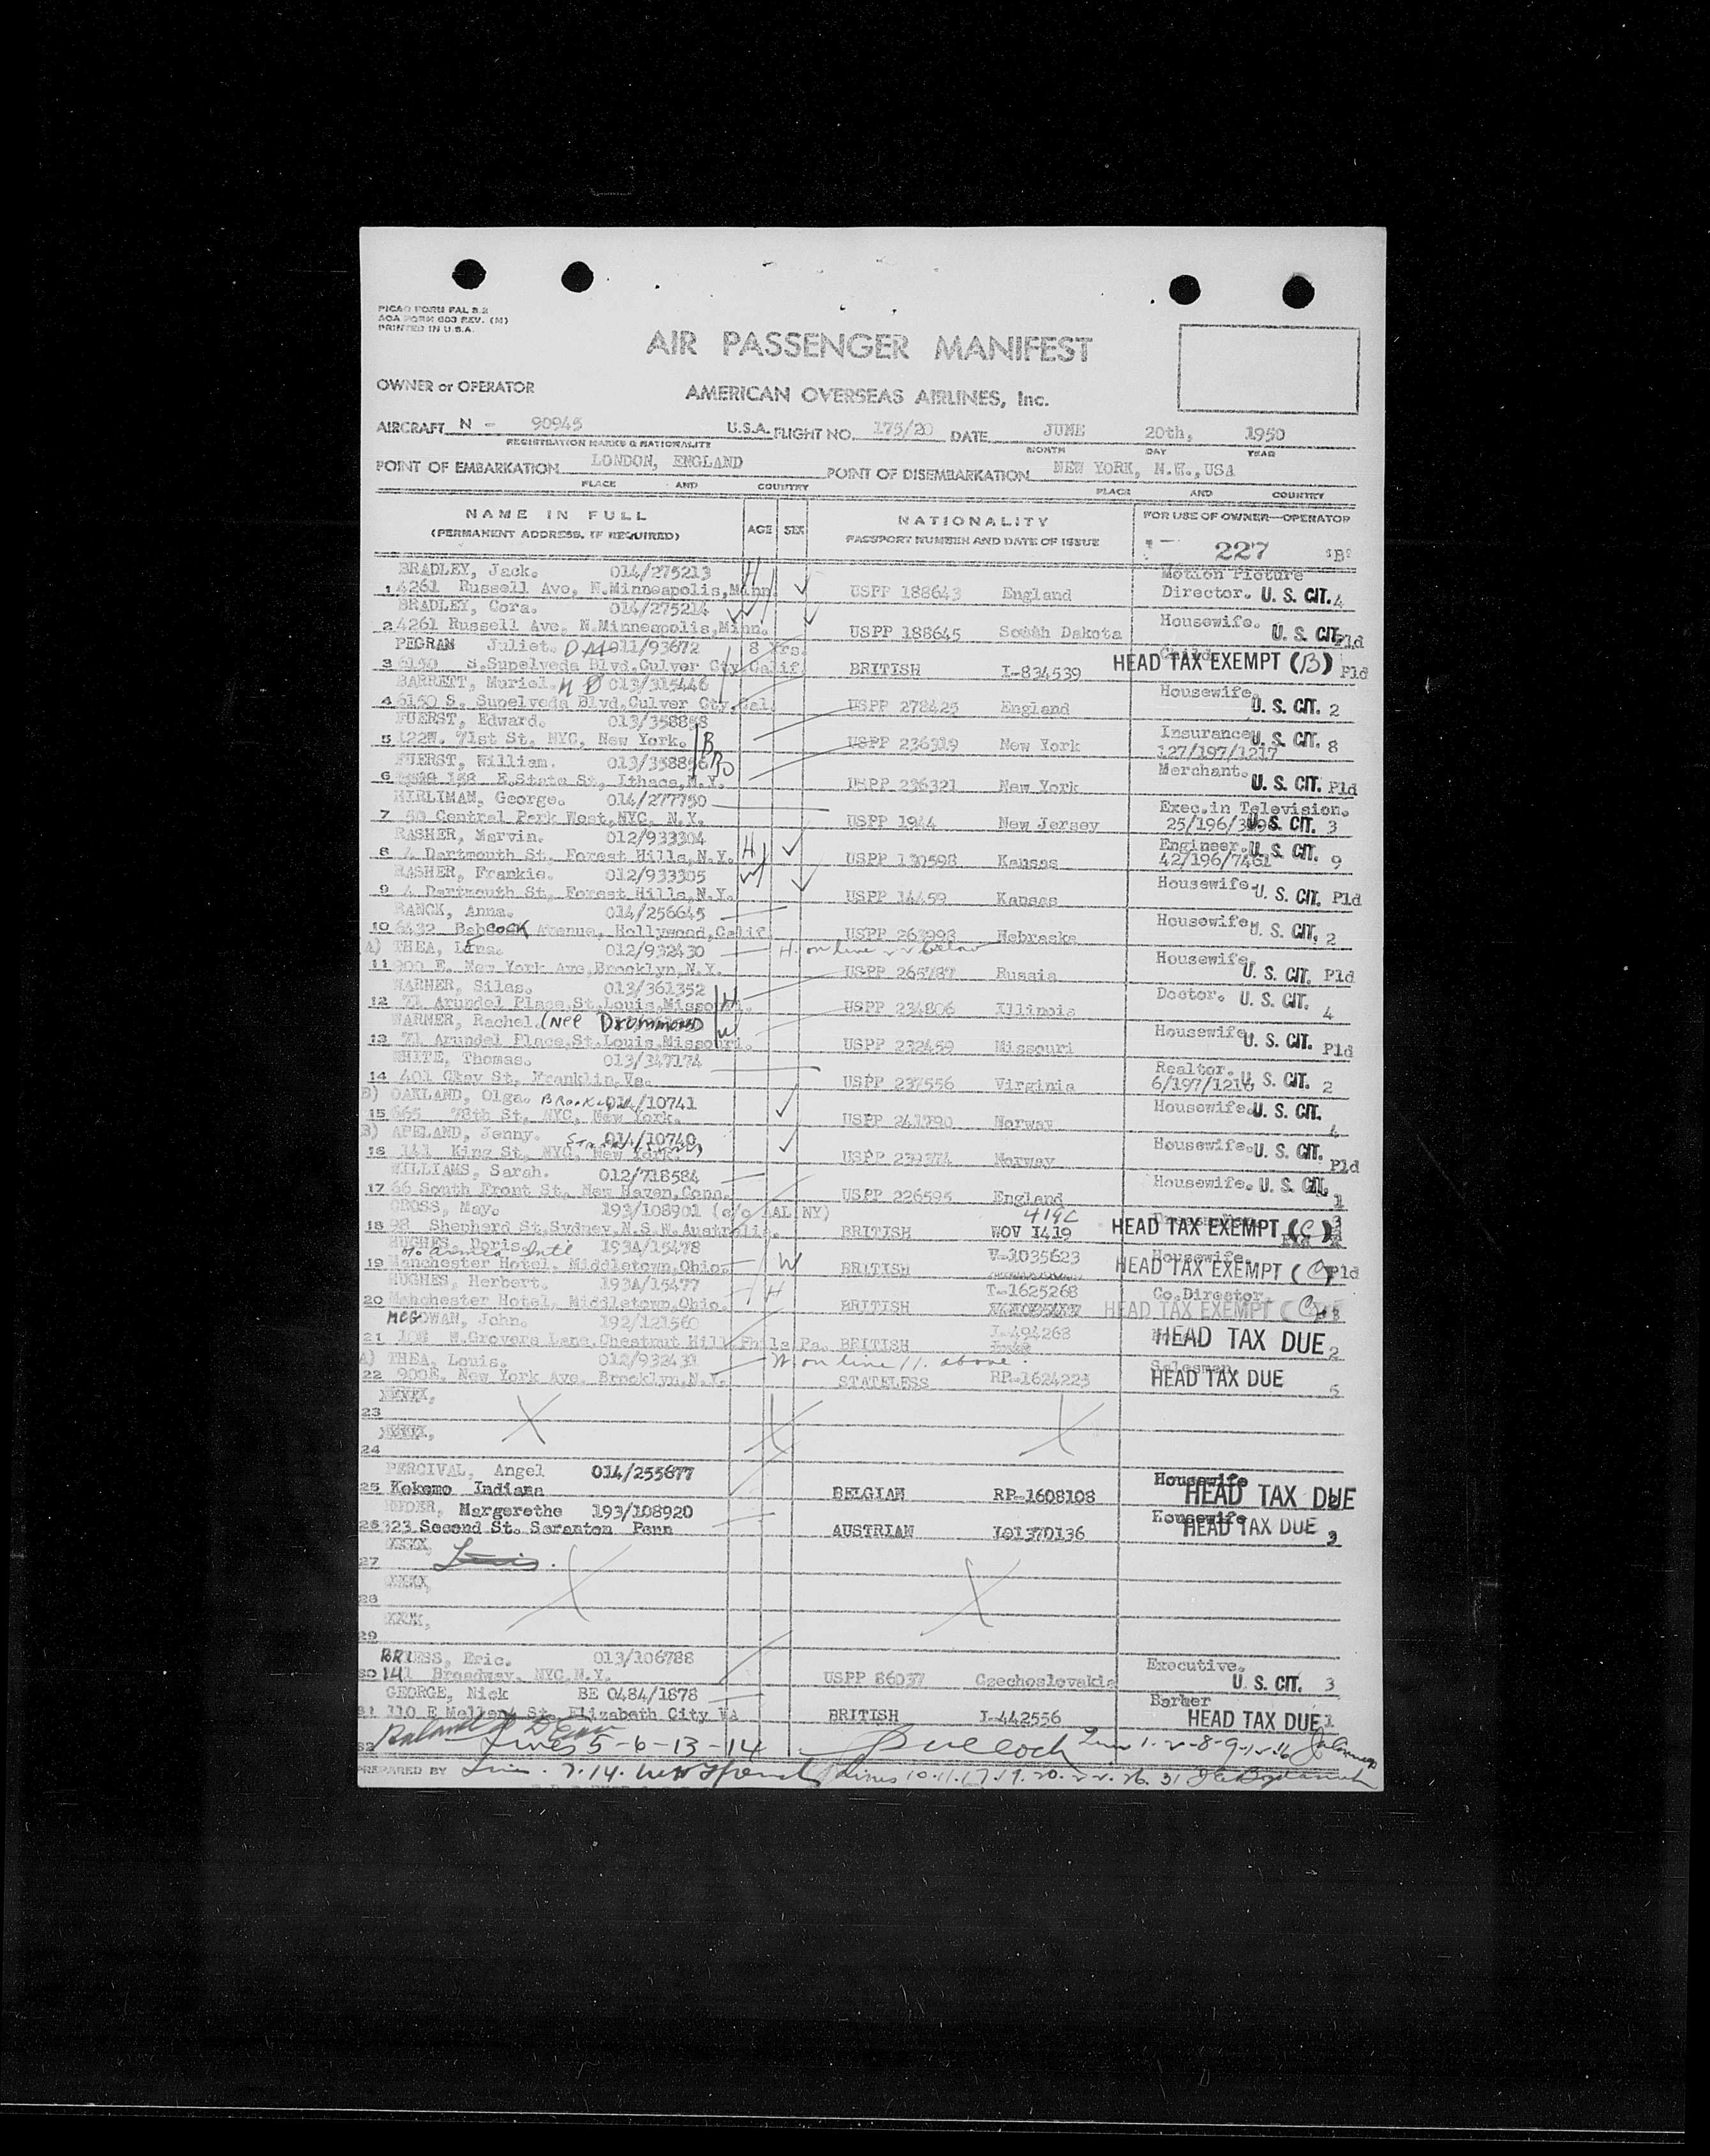 PICAO FORM FAL 2.2
AOA FORM 603 REV. (M)
PRINTED IN U.S.A.
AIR PASSENGER MANIFEST
OWNER or OPERATOR AMERICAN OVERSEAS AIRLINES, Inc.
AIRCRAFT N - 90945 U.S.A. FLIGHT NO. 175/20 DATE JUNE 20th, 1950
REGISTRATION MARKS & NATIONALITY MONTH DAY YEAR
POINT OF EMBARKATION LONDON, ENGLAND POINT OF DISEMBARKATION NEW YORK, N.Y.,USA
PLACE AND COUNTRY PLACE AND COUNTRY
NAME IN FULL AGE SEX NATIONALITY FOR USE OF OWNER—OPERATOR
(PERMANENT ADDRESS, IF REQUIRED) PASSPORT NUMBER AND DATE OF ISSUE 227 "B"
BRADLEY, Jack. 014/275213 H Motion Picture
1 4261 Russell Ave, N.Minneapolis,Minn. USPP 188643 England Director. U. S. CIT. 4
BRADLEY, Cora. 014/275214 W Housewife.
2 4261 Russell Ave. N.Minneapolis,Minn. USPP 188645 South Dakota U. S. CIT. Pld
PEGRAM Juliet. 011/93672 8 Yrs. Child
3 6150 S.Supelveda Blvd.Culver Cty.Calif. BRITISH I-834539 HEAD TAX EXEMPT (B) Pld
BARRETT, Muriel. 013/315446 Housewife.
4 6150 S. Supelveda Blvd,Culver Cty.Cal. USPP 278425 England U. S. CIT. 2
FUERST, Edward. 013/358858 Insurance
5 122W. 71st St. NYC, New York. B USPP 236319 New York 127/197/1217 U. S. CIT. 8
FUERST, William. 013/358856 Merchant.
6 E.State St, Ithaca,N.Y. USPP 236321 New York U. S. CIT. Pld
HIRLIMAN, George. 014/277750 Exec.in Television.
7 50 Central Park West,NYC, N.Y. USPP 1944 New Jersey 25/196/ U. S. CIT. 3
RASHER, Marvin. 012/933304 H Engineer.
8 4 Dartmouth St, Forest Hills,N.Y. USPP 130598 Kansas 42/196/7461 U. S. CIT. 9
RASHER, Frankie. 012/933305 W Housewife.
9 4 Dartmouth St, Forest Hills,N.Y. USPP 14459 Kansas U. S. CIT. Pld
RANCK, Anna. 014/256645 Housewife.
10 6432 Babcock Avenue, Hollywood,Calif. USPP 263993 Nebraska U. S. CIT. 2
A) THEA, Lena. 012/932430 H. on line 22 below Housewife.
11 900 E. New York Ave,Brooklyn,N.Y. USPP 265787 Russia U. S. CIT. Pld
WARNER, Silas. 013/361352 H Doctor.
12 71 Arundel Place,St.Louis,Missouri. USPP 234806 Illinois U. S. CIT. 4
WARNER, Rachel. (nee Drummond W Housewife
13 71 Arundel Place,St.Louis,Missouri. USPP 232459 Missouri U. S. CIT. Pld
WHITE, Thomas. 013/347174 Realtor.
14 401 Gkay St, Franklin,Va. USPP 237556 Virginia 6/197/1216 U. S. CIT. 2
B) OAKLAND, Olga. Brooklyn 014/10741 Housewife.
15 665 78th St, NYC, New York. USPP 241790 Norway U. S. CIT. 4
B) APELAND, Jenny. 014/10740 Housewife.
16 141 King St, NYC, New York. USPP 239374 Norway U. S. CIT. Pld
WILLIAMS, Sarah. 012/718584 Housewife.
17 66 South Front St, New Haven,Conn. USPP 226595 England U. S. CIT. 1
CROSS, May. 193/108901 (c/o AAL NY) 419C
18 98 Shepherd St,Sydney,N.S.W.Australia. BRITISH WOV 1419 HEAD TAX EXEMPT (C) 3
HUGHES, Doris. 193A/15478 V-1035623 Housewife.
19 Manchester Hotel, Middletown,Ohio. W BRITISH HEAD TAX EXEMPT (C) Pld
HUGHES, Herbert. 193A/15477 T-1625268 Co.Director.
20 Manchester Hotel, Middletown,Ohio. H BRITISH HEAD TAX EXEMPT (C)
MCGOWAN, John. 192/121560 I-494268
21 N.Grovers Lane,Chestnut Hill,Phila Pa. BRITISH HEAD TAX DUE 2
A) THEA, Louis. 012/932431 W on line 11. above. Salesman
22 900E. New York Ave. Brooklyn,N.Y. STATELESS RP-1624223 HEAD TAX DUE 5
23
24
PERCIVAL, Angel 014/255677 Housewife
25 Kokomo Indiana BELGIAN RP-1608108 HEAD TAX DUE
Margarethe 193/108920 Housewife
26 323 Second St. Scranton Penn AUSTRIAN I01370136 HEAD TAX DUE 3
27
28
29
BRIESS, Eric. 013/106788 Executive.
30 141 Broadway, NYC,N.Y. USPP 86037 Czechoslovakia U. S. CIT. 3
GEORGE, Nick BE 0484/1878 Barber
31 110 E Mellen St. Elizabeth City VA BRITISH I-442556 HEAD TAX DUE 1
32 Lines 5-6-13-14 Bullock Lines 1-2-8-9-15-16
PREPARED BY Lines 10.11.17.19.20.22.26.31